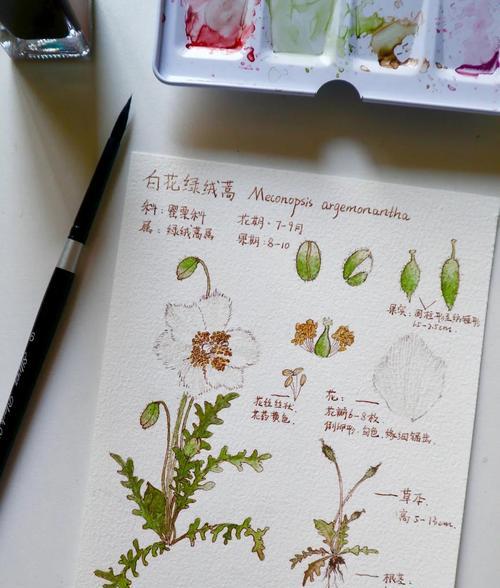 白花绿绒蒿 Meconopsis argemonantha
科:罂粟科 花期:7-9月
属:绿绒蒿属 果期:8-10
果实:圆柱形至纺锤形
1.5-2.5cm.
花丝丝状
花药黄色.
花:
花瓣6-8枚.
倒卵形.白色.缘细锯齿.
草本.
高5-13cm.
根茎: